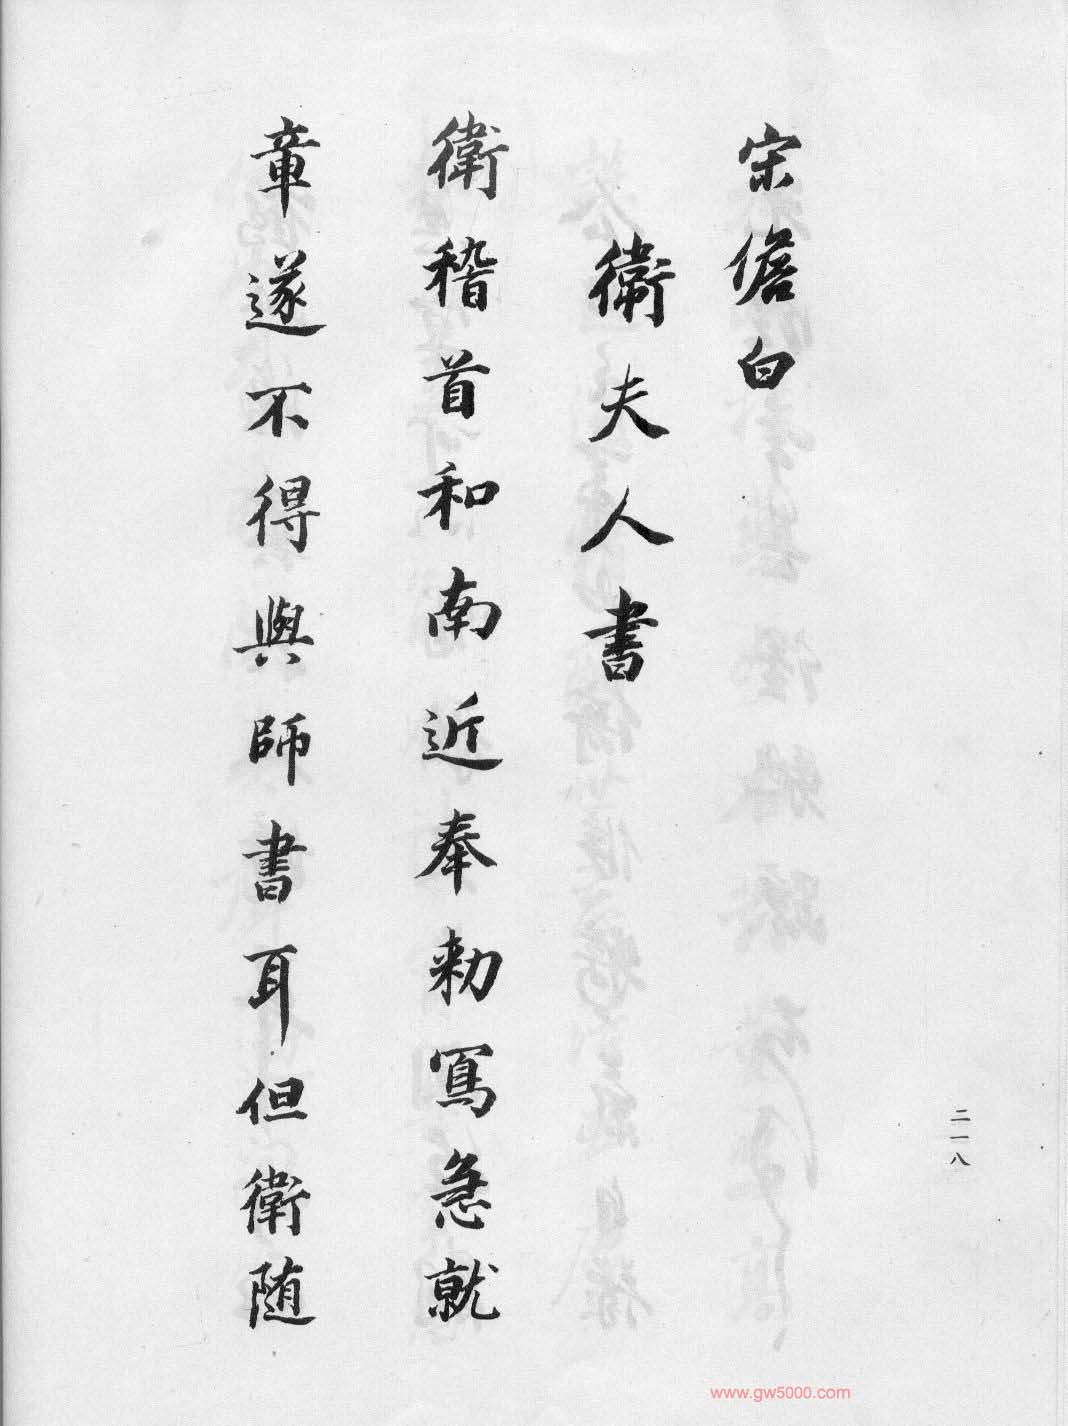 宋儋白
衛夫人書
衛稽首和南近奉勑寫急就
章遂不得與師書耳但衛随
二一八
www.gw5000.com